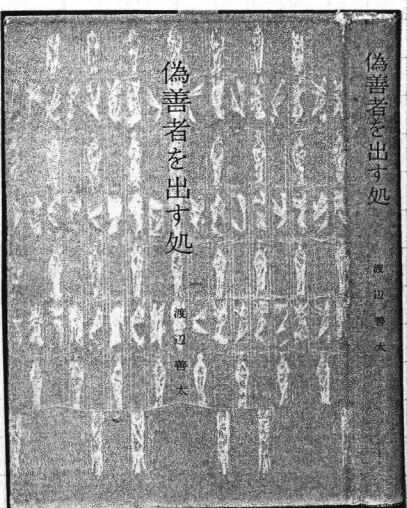 偽善者を出す処
渡辺善太
偽善者を出す処
渡辺善太